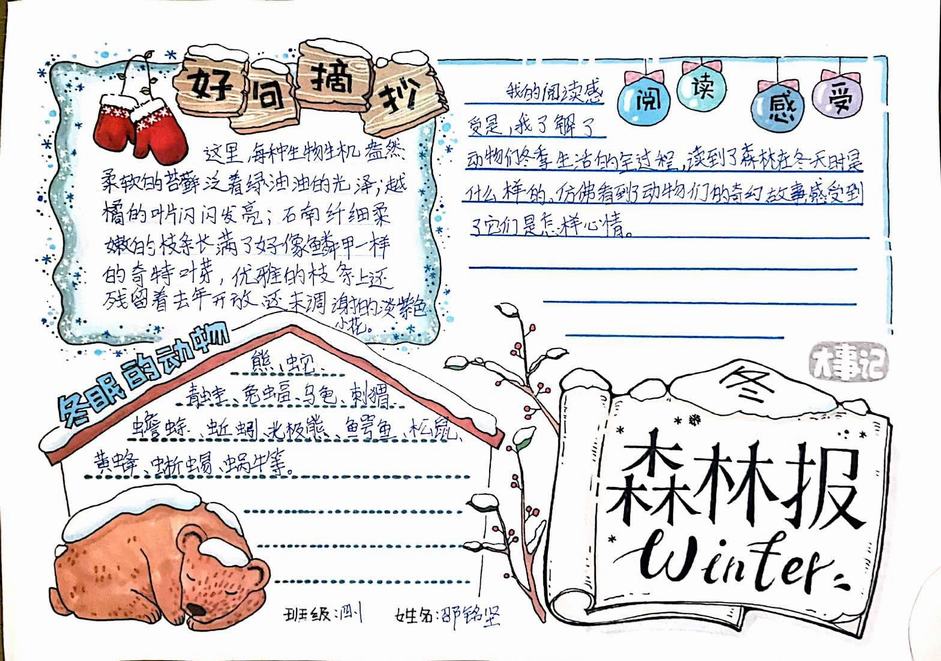 好词摘抄
这里每种生物生机盎然,
柔软的苔藓泛着绿油油的光泽;越
橘的叶片闪闪发亮;石南纤细柔
嫩的枝条长满了好像鳞甲一样
的奇特叶芽,优雅的枝条上还
残留着去年开放、还未凋谢的淡紫色
小花。
阅读感受
我的阅读感
受是,我了解了
动物们冬季生活的全过程,读到了森林在冬天时是
什么样的。仿佛看到了动物们的奇幻故事感受到
了它们是怎样心情。
冬眠的动物
熊、蛇、
青蛙、兔蝠、乌龟、刺猬、
蟾蜍、蚯蚓、北极熊、鳄鱼、松鼠、
黄蜂、蜥蜴、蜗牛等。
班级:
姓名:邵铭坚
大事记
冬
森林报
Winter